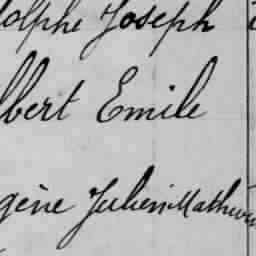 dolphe Joseph
lbert Emile
gène Julien Mathurin